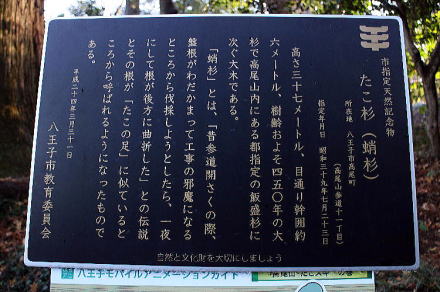 市指定天然記念物
たこ杉（蛸杉）
所在地　八王子市高尾町
（高尾山参道十一丁目）
指定年月日　昭和三十九年七月二十三日
高さ三十七メートル、目通り幹囲約
六メートル、樹齢およそ四五〇年の大
杉で高尾山内にある都指定の飯盛杉に
次ぐ大木である。
「蛸杉」とは、「昔参道開さくの際、
盤根がわだかまって工事の邪魔になる
ところから伐採しようとしたら、一夜
にして根が後方に曲折した」との伝説
とその根が「たこの足」に似ていると
ころから呼ばれるようになったもので
ある。
平成二十四年三月三十一日
八王子市教育委員会
自然と文化財を大切にしましょう
八王子モバイルアニメーションガイド